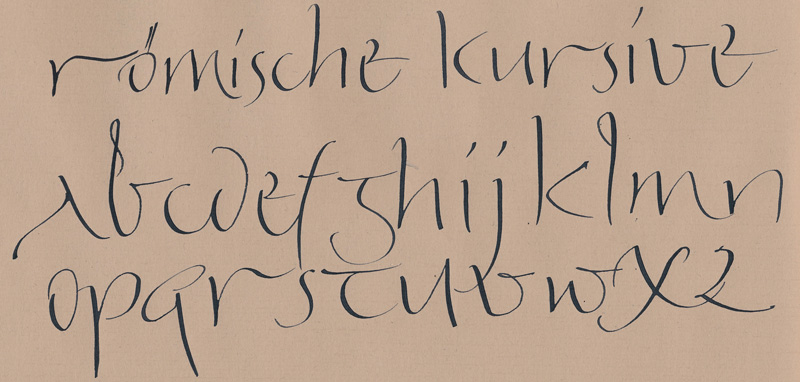 römische kursive
abcdefghijklmn
opqrstuvwxz